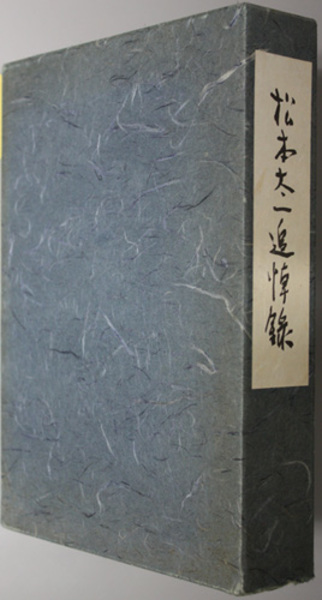 松本太一追悼録